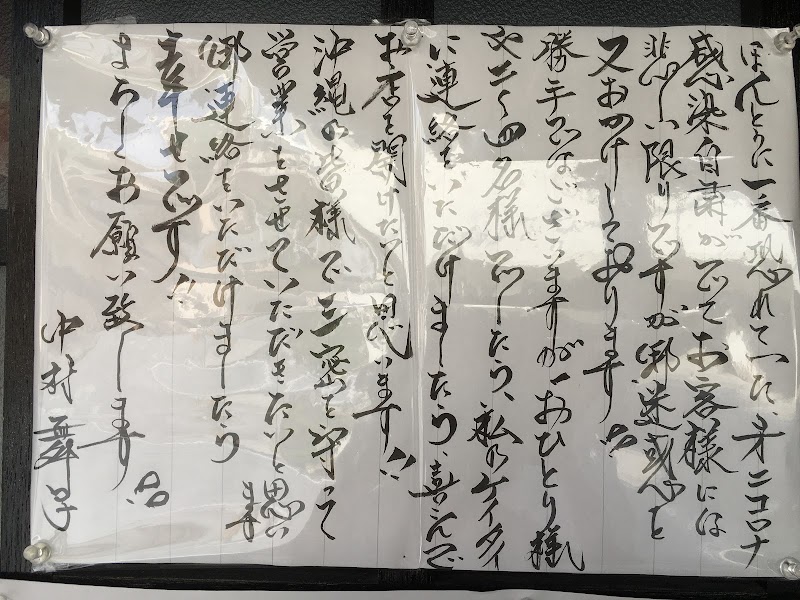 ほんとうに一番恐れていた、才二コロナ
感染自粛がでてお客様には
悲しい限りですが御迷惑を
又おかけしております。
勝手ではございますが、おひとり様
又二〜四名様でしたら、私乃ケイタイ
に連絡をいただけましたら、喜んで
お店を開けたいと思います!!
沖縄の皆様で三密を守って
営業をさせていただきたいと思います
御連絡をいただけましたら
幸せです!!
よろしくお願い致します。
中村舞子